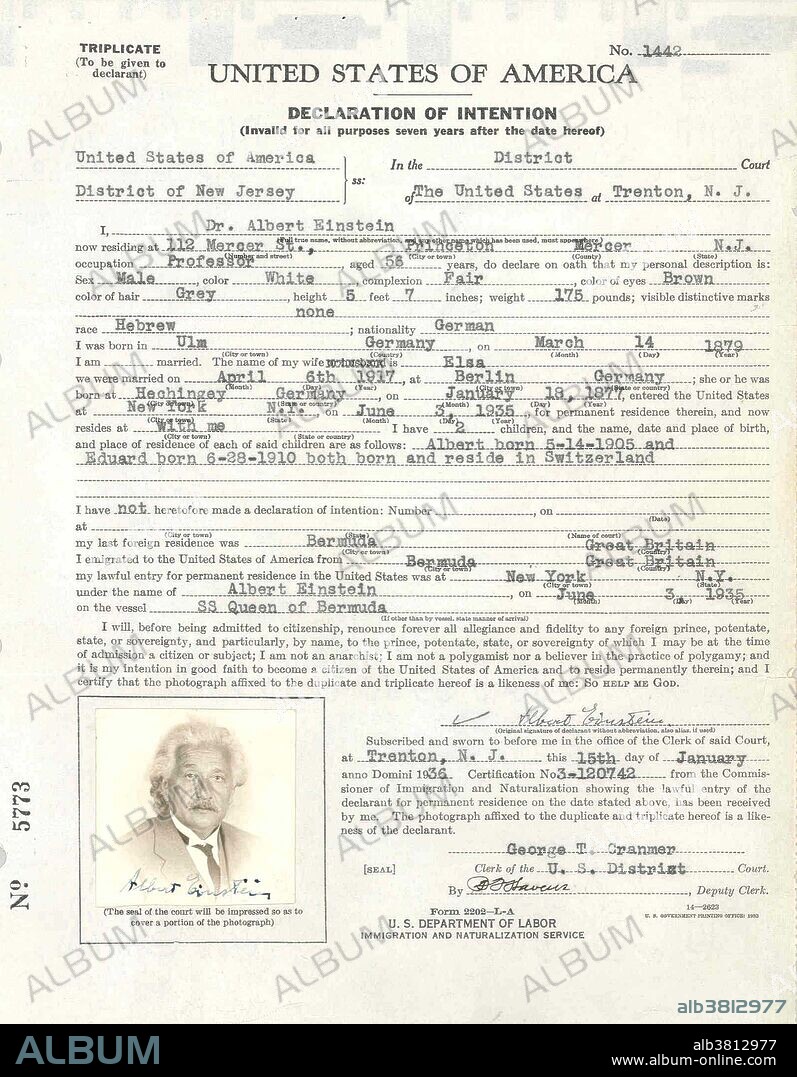 TRIPLICATE
(To be given to
declarant)
No. 1442
UNITED STATES OF AMERICA
DECLARATION OF INTENTION
(Invalid for all purposes seven years after the date hereof)
United States of America
District of New Jersey
ss:
In the District Court
of The United States at Trenton, N. J.
I, Dr. Albert Einstein
(Full true name, without abbreviation, and any other name which has been used, must appear here)
now residing at 112 Mercer St., Princeton Mercer N.J.
(Number and street) (City or town) (County) (State)
occupation Professor, aged 56 years, do declare on oath that my personal description is:
Sex Male, color White, complexion Fair, color of eyes Brown
color of hair Grey, height 5 feet 7 inches; weight 175 pounds; visible distinctive marks
none
race Hebrew; nationality German
I was born in Ulm Germany, on March 14 1879
(City or town) (Country) (Month) (Day) (Year)
I am married. The name of my wife or husband is Elsa
we were married on April 6th 1917, at Berlin Germany; she or he was
(Month) (Day) (Year) (City or town) (State or country)
born at Hechingey Germany, on January 18, 1877, entered the United States
(City or town) (State or country) (Month) (Day) (Year)
at New York N.Y. on June 3, 1935 for permanent residence therein, and now
(City or town) (State) (Month) (Day) (Year)
resides at with me I have 2 children, and the name, date and place of birth,
(City or town) (State or country)
and place of residence of each of said children are as follows: Albert born 5-14-1905 and
Eduard born 6-28-1910 both born and reside in Switzerland
I have not heretofore made a declaration of intention: Number, on
(Date)
at
(City or town) (State) (Name of court)
my last foreign residence was Bermuda Great Britain
(City or town) (Country)
I emigrated to the United States of America from Bermuda Great Britain
(City or town) (Country)
my lawful entry for permanent residence in the United States was at New York N.Y.
(City or town) (State)
under the name of Albert Einstein, on June 3, 1935
(Month) (Day) (Year)
on the vessel SS Queen of Bermuda
(If other than by vessel, state manner of arrival)
I will, before being admitted to citizenship, renounce forever all allegiance and fidelity to any foreign prince, potentate,
state, or sovereignty, and particularly, by name, to the prince, potentate, state, or sovereignty of which I may be at the time
of admission a citizen or subject; I am not an anarchist; I am not a polygamist nor a believer in the practice of polygamy; and
it is my intention in good faith to become a citizen of the United States of America and to reside permanently therein; and I
certify that the photograph affixed to the duplicate and triplicate hereof is a likeness of me: SO HELP ME GOD.
Albert Einstein
(Original signature of declarant without abbreviation, also alias, if used)
Subscribed and sworn to before me in the office of the Clerk of said Court,
at Trenton, N. J. this 15th day of January
anno Domini 1936. Certification No 3-120742 from the Commis-
sioner of Immigration and Naturalization showing the lawful entry of the
declarant for permanent residence on the date stated above, has been received
by me. The photograph affixed to the duplicate and triplicate hereof is a like-
ness of the declarant.
George T. Cranmer
[SEAL] Clerk of the U. S. District Court.
By, Deputy Clerk.
Form 2202—L-A
14—2623
U. S. GOVERNMENT PRINTING OFFICE: 1932
U. S. DEPARTMENT OF LABOR
IMMIGRATION AND NATURALIZATION SERVICE
Albert Einstein
(The seal of the court will be impressed so as to
cover a portion of the photograph)
No 5773
ALBUM
alb3812977
ALBUM
alb3812977
www.album-online.com